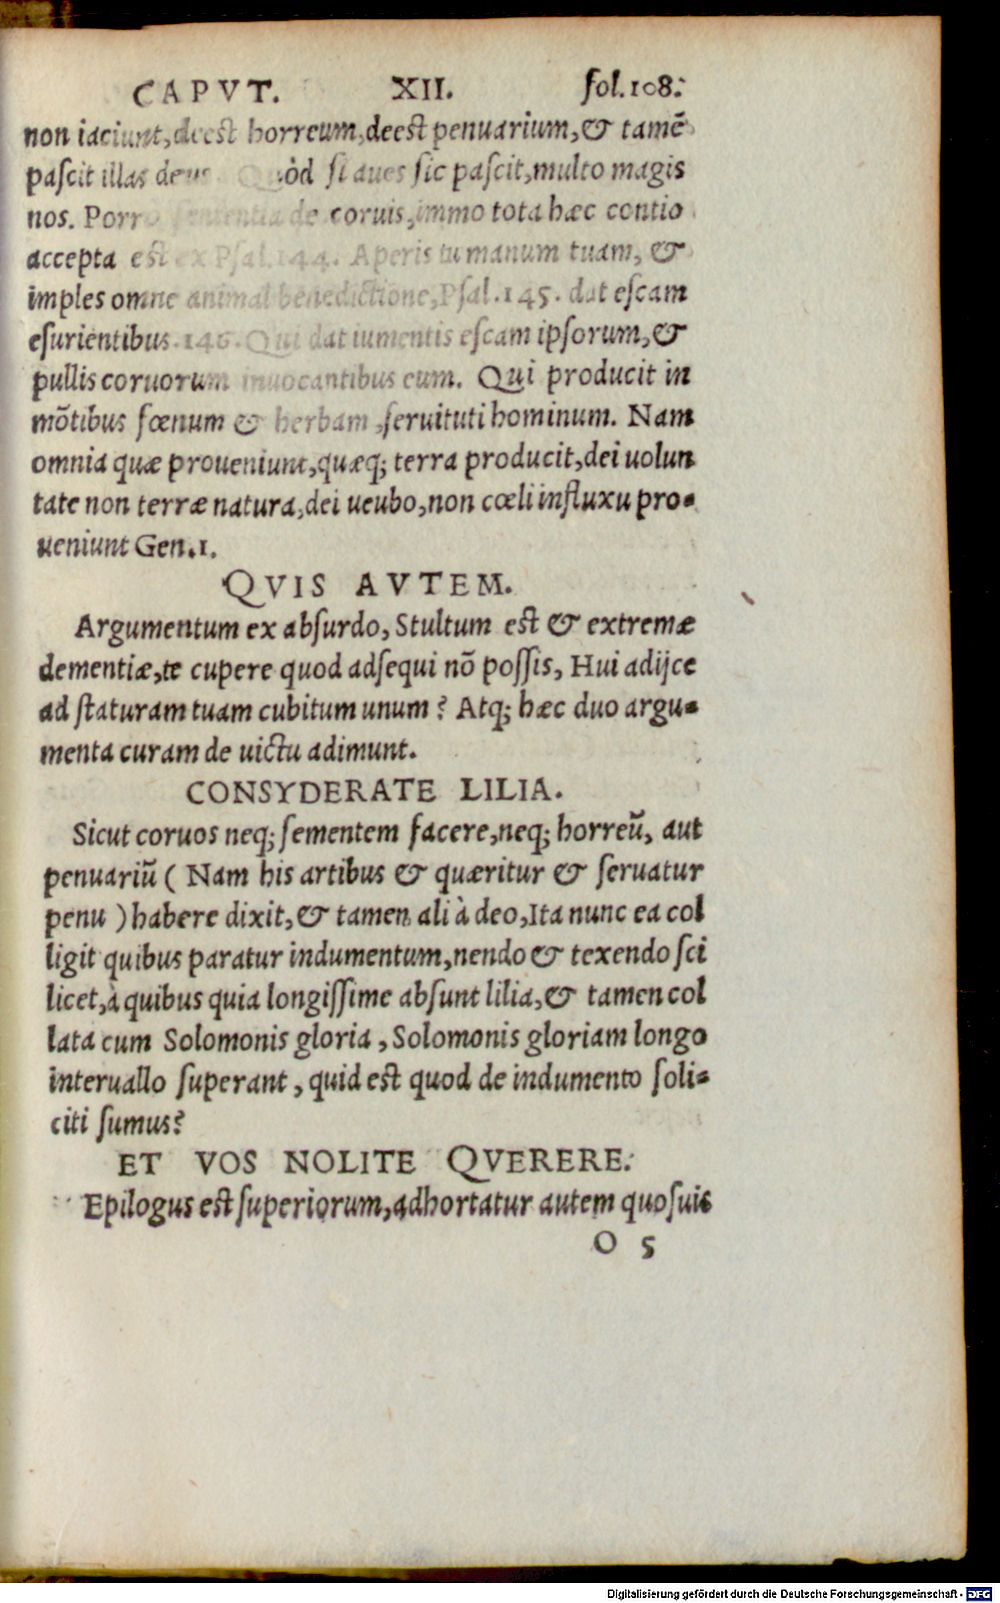 CAPVT. XII. fol.108.
non iaciunt, deest horreum, deest penuarium, & tamē
pascit illas deus Quòd si aues sic pascit, multo magis
nos. Porro sententia de coruis, immo tota hæc contio
accepta est ex Psal.144. Aperis tu manum tuam, &
imples omne animal benedictione, Psal.145. dat escam
esurientibus.146. Qui dat iumentis escam ipsorum, &
pullis coruorum inuocantibus eum. Qui producit in
mōtibus fœnum & herbam, seruituti hominum. Nam
omnia quæ proueniunt, quæq; terra producit, dei uolun
tate non terræ natura, dei ueubo, non cœli influxu pro-
ueniunt Gen.1.
QVIS AVTEM.
Argumentum ex absurdo, Stultum est & extremæ
dementiæ, te cupere quod adsequi nō possis, Hui adijce
ad staturam tuam cubitum unum? Atq; hæc duo argu-
menta curam de uictu adimunt.
CONSYDERATE LILIA.
Sicut coruos neq; sementem facere, neq; horreū, aut
penuariū (Nam his artibus & quæritur & seruatur
penu) habere dixit, & tamen ali à deo, Ita nunc ea col
ligit quibus paratur indumentum, nendo & texendo sci
licet, à quibus quia longissime absunt lilia, & tamen col
lata cum Solomonis gloria, Solomonis gloriam longo
interuallo superant, quid est quod de indumento soli-
citi sumus?
ET VOS NOLITE QVERERE.
Epilogus est superiorum, adhortatur autem quo suis
O 5
Digitalisierung gefördert durch die Deutsche Forschungsgemeinschaft - DFG